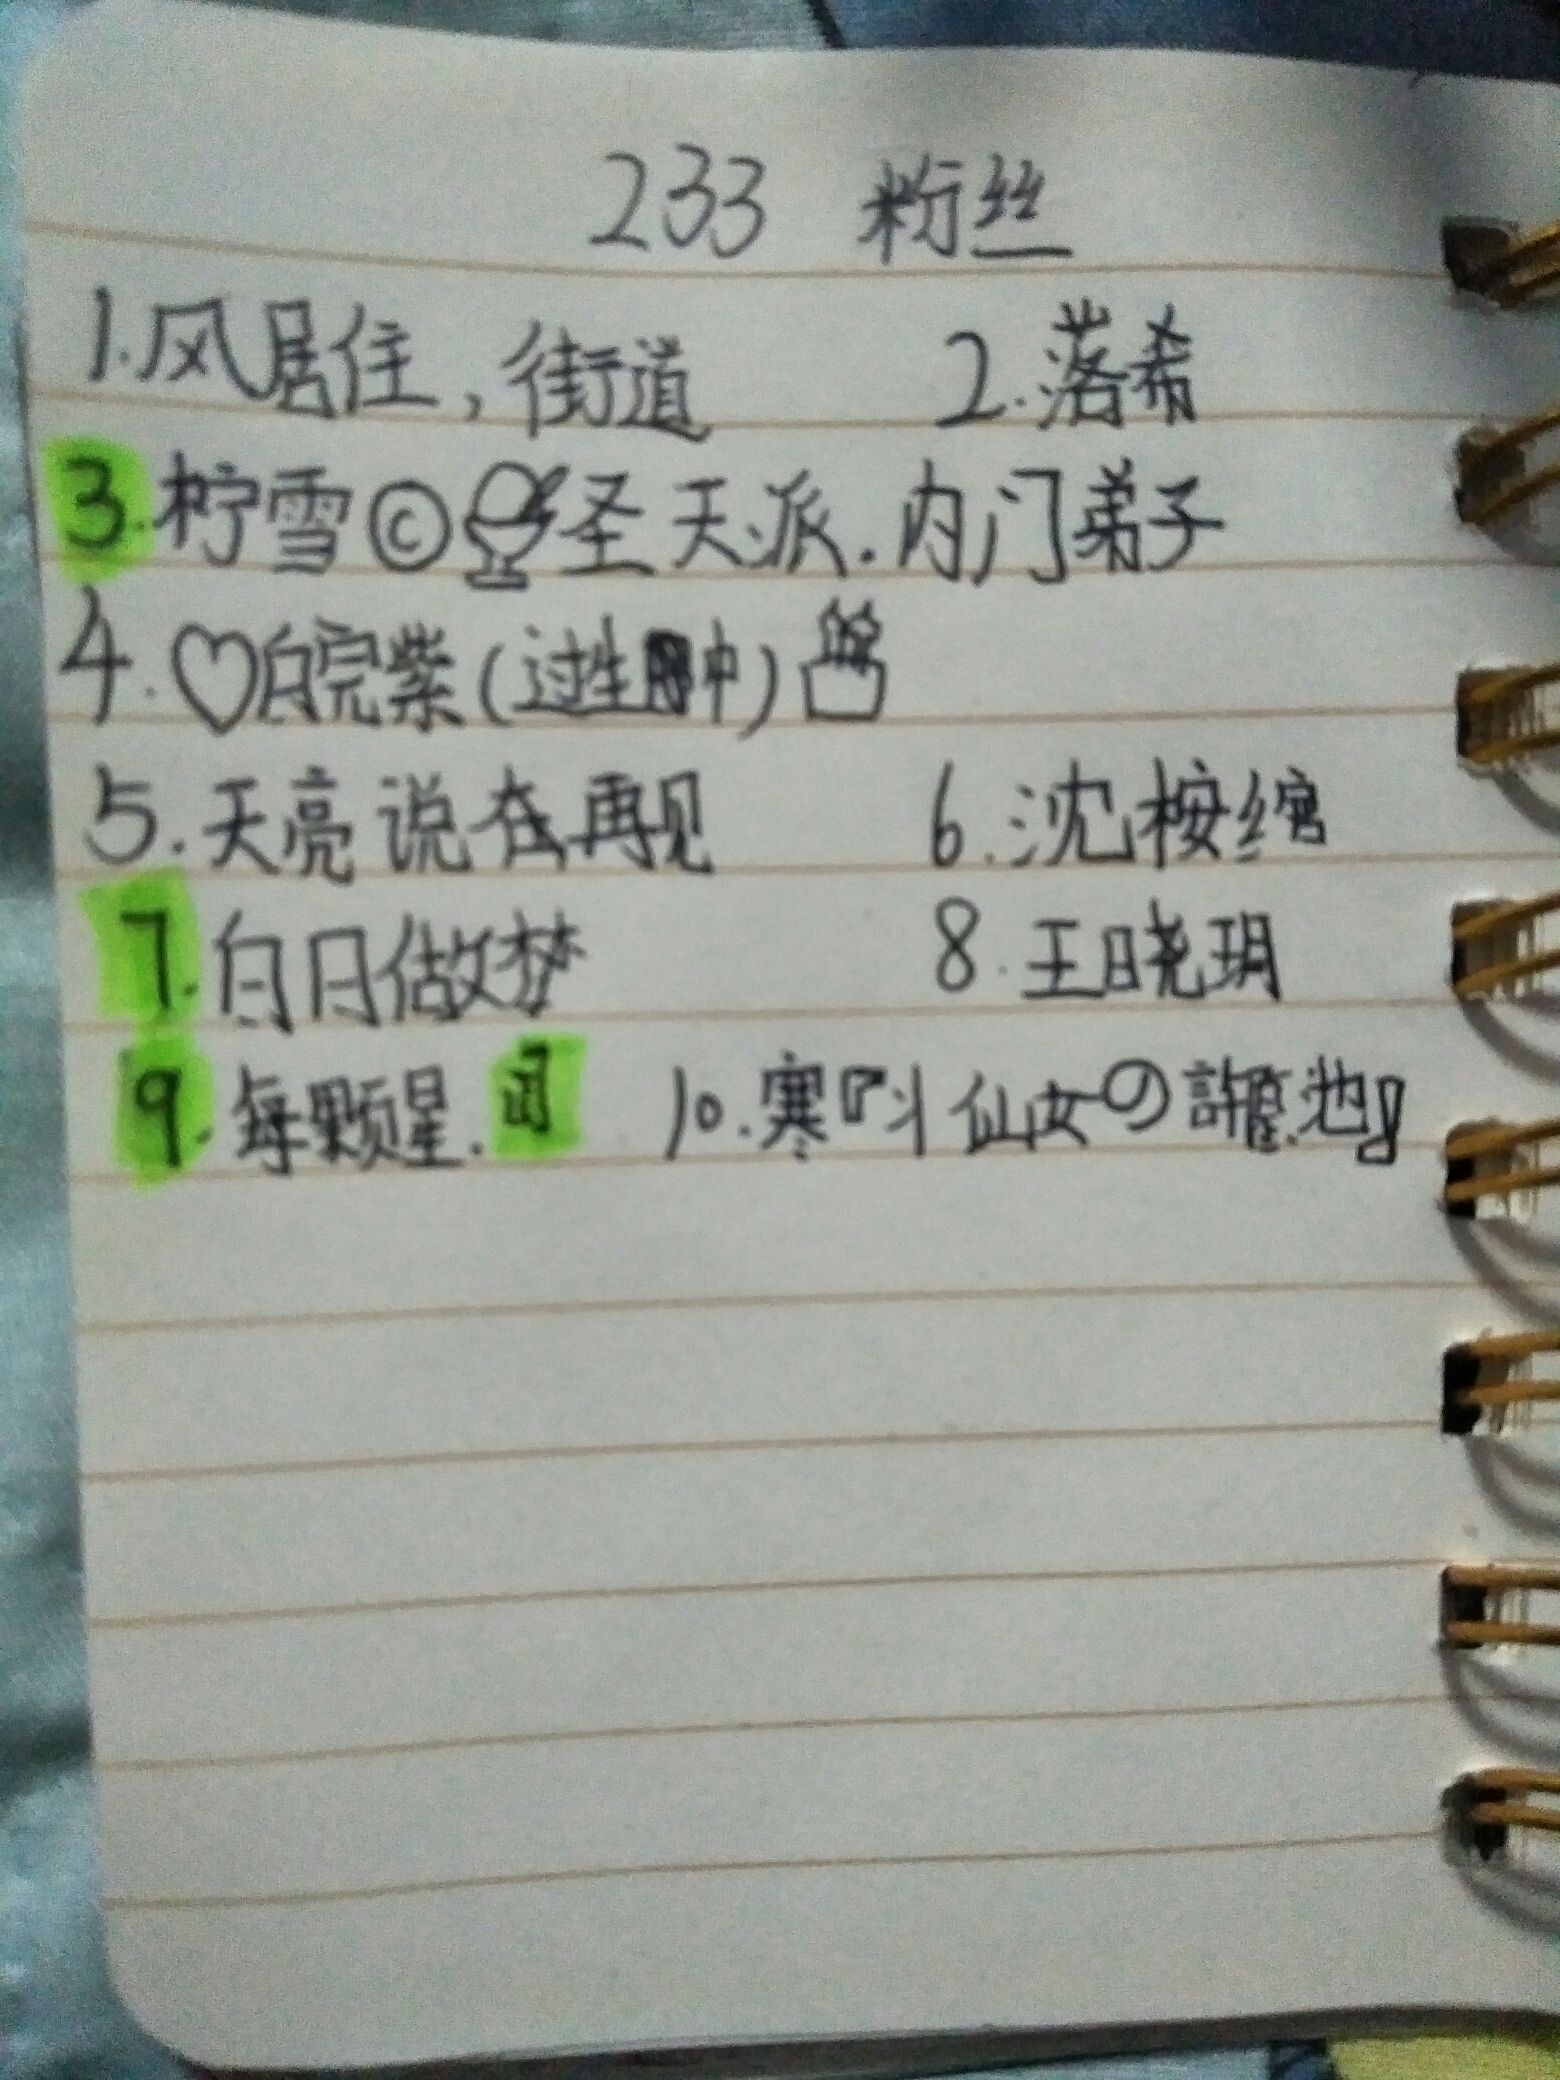 233 粉丝
1.风居住,街道 2.落希
3.柠雪©圣天派.内门弟子
4.♡皖紫(过生中)
5.天亮说在再见 6.沈桉绾
7.白日做梦 8.王晓玥
9.每颗星. 10.寒『斗仙女の許愿池』